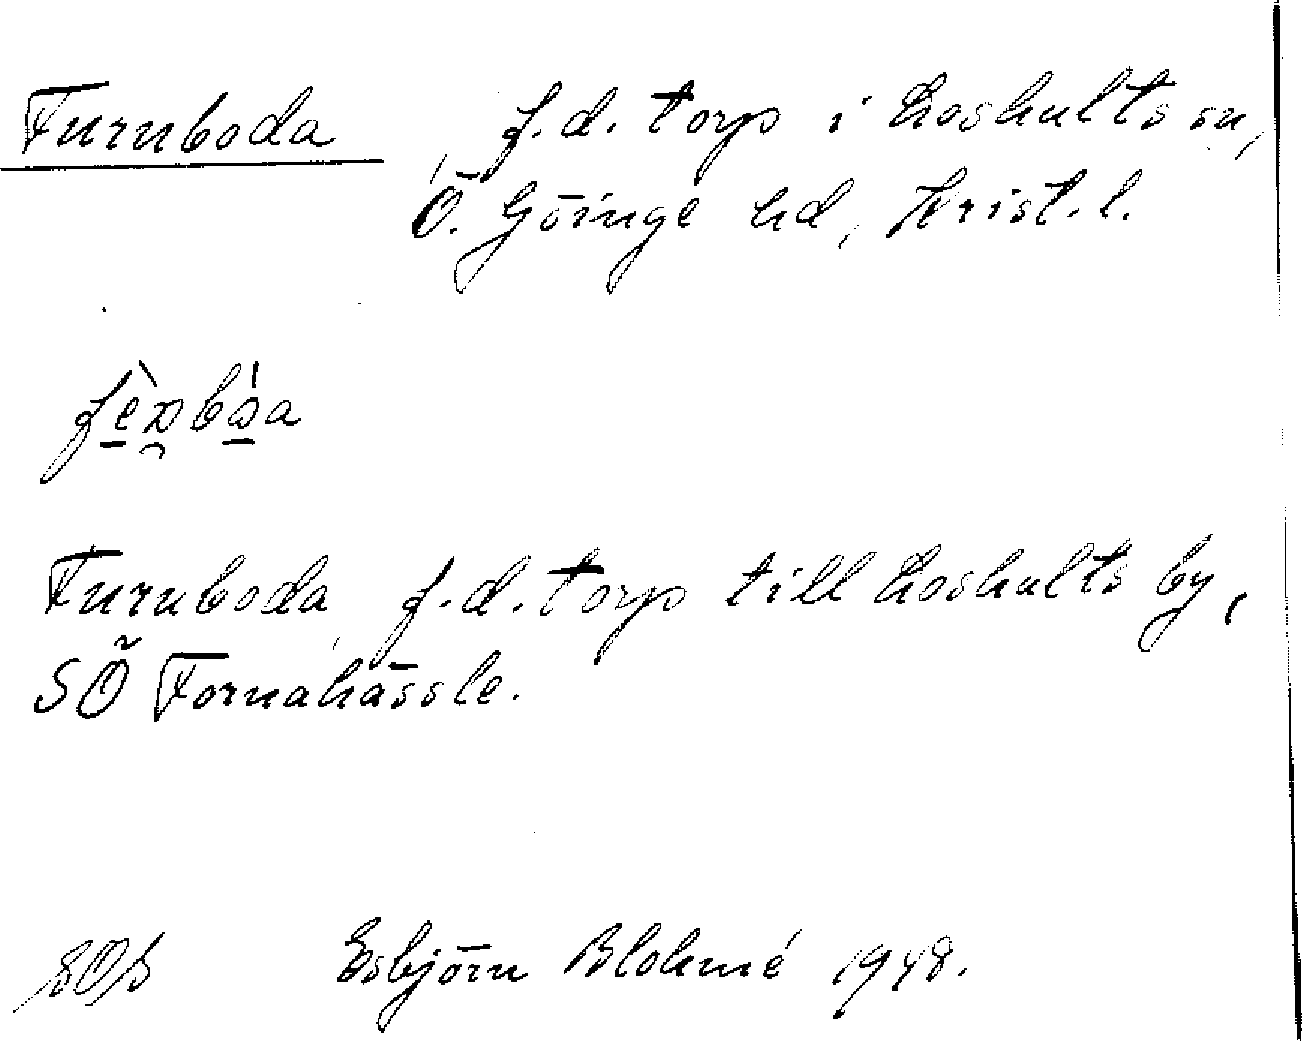 Furuboda f.d. torp i Loshults sn,
Ö. Göinge hd, Krist. l.
Furuboda, f.d. torp till Loshults by,
SÖ Fornahässle.
Esbjörn Blohmé 1948.